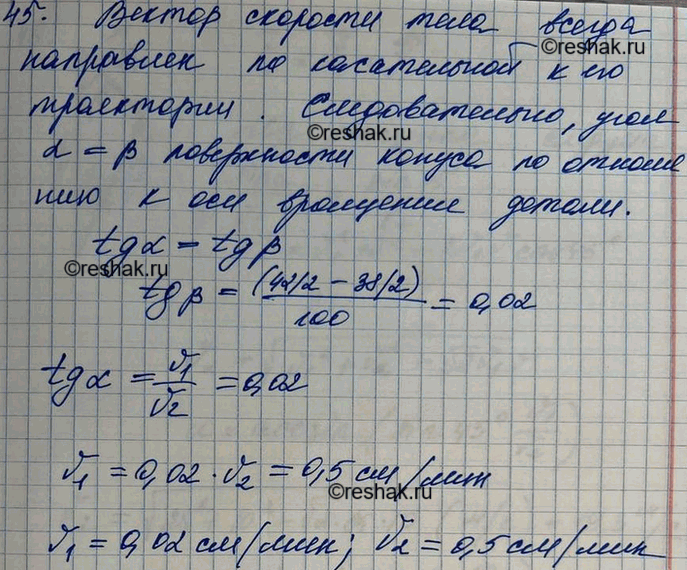 45. Вектор скорости тела всегда
©reshak.ru
направлен по касательной к его
траектории. Следовательно, угол
©reshak.ru
α = β поверхности конуса по отноше
нию к оси вращение детали.
tgα = tgβ
©reshak.ru
tgβ = (42/2 − 38/2)/100 = 0,02
tgα = v₁/v₂ = 0,02
v₁ = 0,02 · v₂ = 0,5 см/мин
©reshak.ru
v₁ = 0,02 см/мин; v₂ = 0,5 см/мин